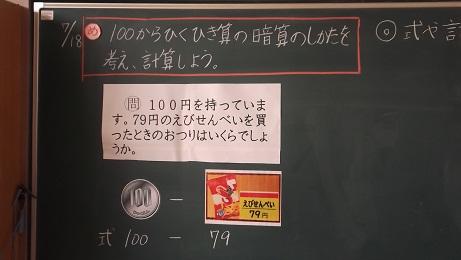 7/18
め 100からひくひき算の暗算のしかたを
考え、計算しよう。
◎ 式や
問 100円を持っていま
す。79円のえびせんべいを買
ったときのおつりはいくらでしょ
うか。
100 －
えびせんべい
79円
式 100 － 79